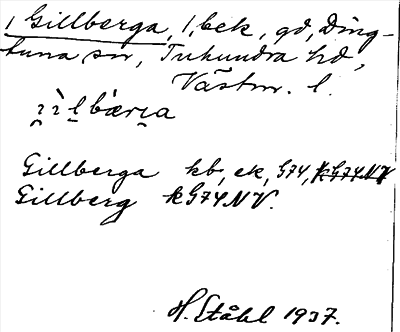 , Gillberga, 1, bek, gd, Ding-
tuna sn, Tuhundra hd,
Västm. l.
Gillberga kb, ek, G74, kG74NV
Gillberg kG74NV.
H. Ståhl 1937.